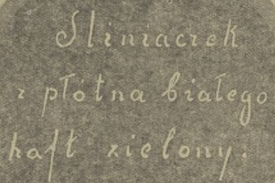 Śliniaczek
z płótna białego
haft zielony.